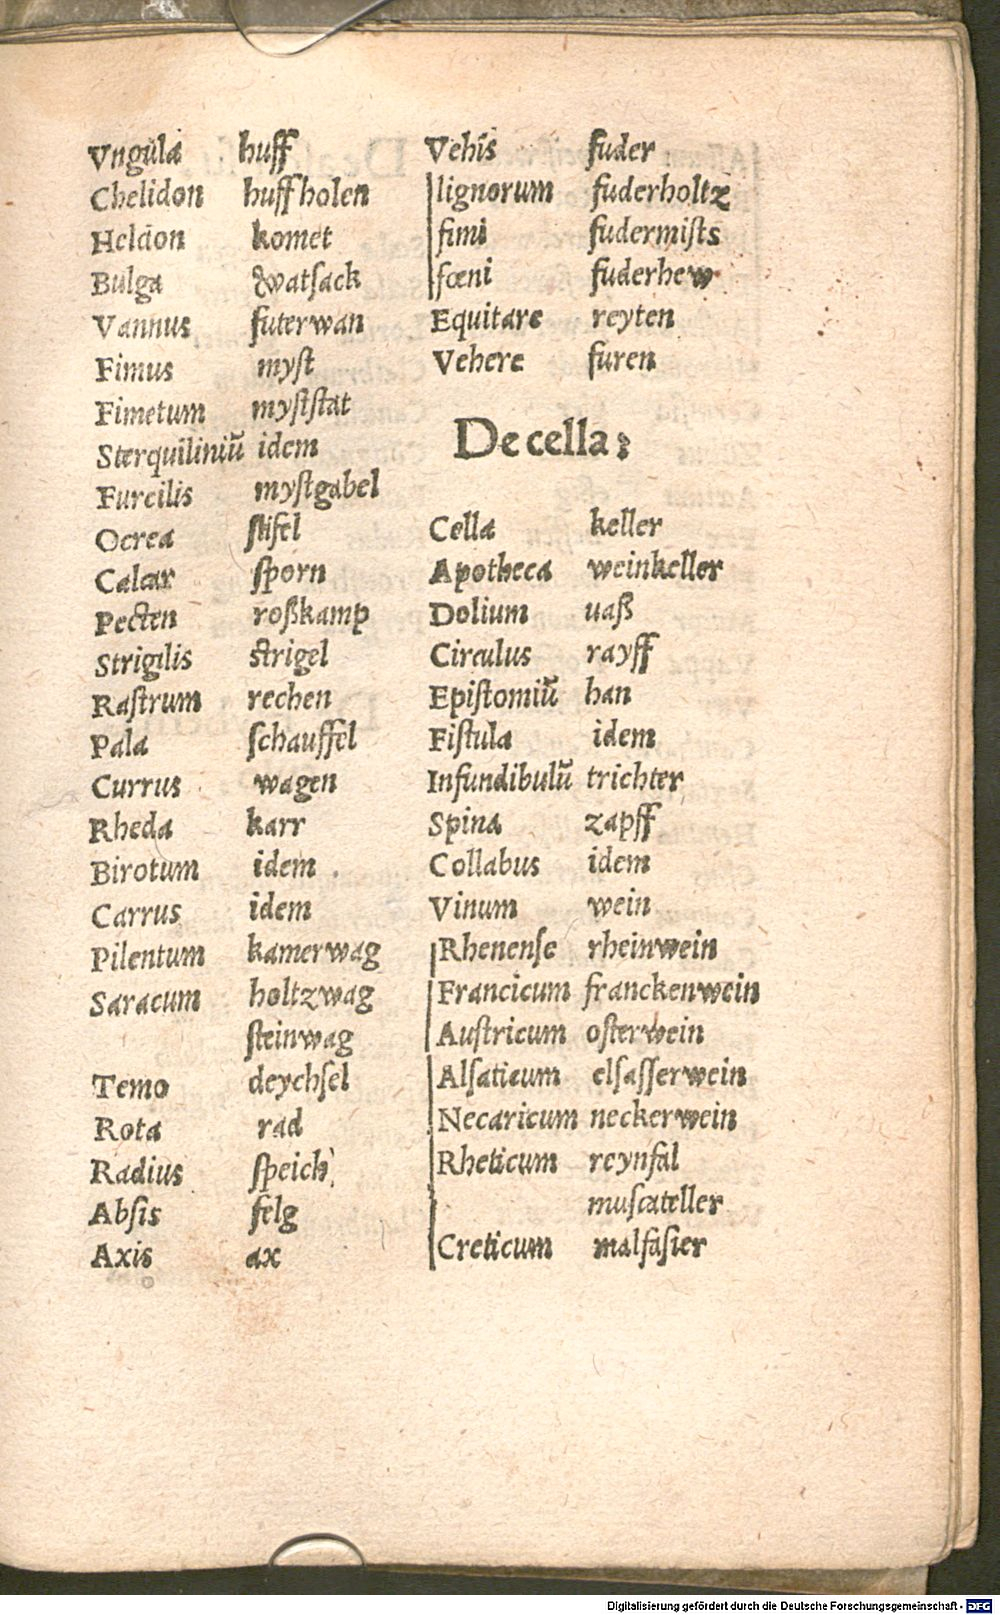 Vngula huff
Chelidon huffholen
Helcion komet
Bulga watſack
Vannus futerwan
Fimus myſt
Fimetum myſtſtat
Sterquiliniū idem
Furcilis myſtgabel
Ocrea ſtifel
Calcar ſporn
Pecten roßkamp
Strigilis strigel
Raſtrum rechen
Pala ſchauffel
Currus wagen
Rheda karr
Birotum idem
Carrus idem
Pilentum kamerwag
Saracum holtzwag
ſteinwag
Temo deychſel
Rota rad
Radius ſpeich
Abſis felg
Axis ax
Vehis fuder
lignorum fuderholtz
fimi fudermiſts
fœni fuderhew
Equitare reyten
Vehere furen
De cella:
Cella keller
Apotheca weinkeller
Dolium uaß
Circulus rayff
Epiſtomiū han
Fiſtula idem
Infundibulū trichter
Spina zapff
Collabus idem
Vinum wein
Rhenenſe rheinwein
Francicum franckenwein
Auſtricum oſterwein
Alſaticum elſaſſerwein
Necaricum neckerwein
Rheticum reynfal
muſcateller
Creticum malfaſier
Digitalisierung gefördert durch die Deutsche Forschungsgemeinschaft - DFG